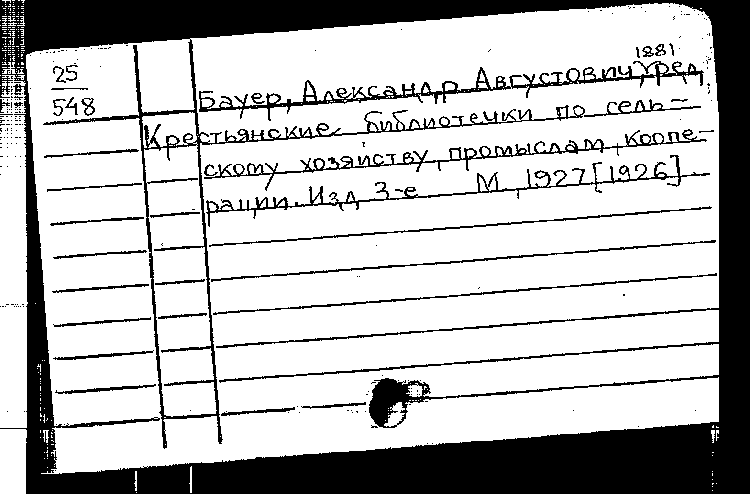 25
548
1881
Бауер, Александр Августович, ред.
Крестьянские библиотечки по сель-
скому хозяйству, промыслам, коопе-
рации. Изд. 3-е М., 1927 [1926].